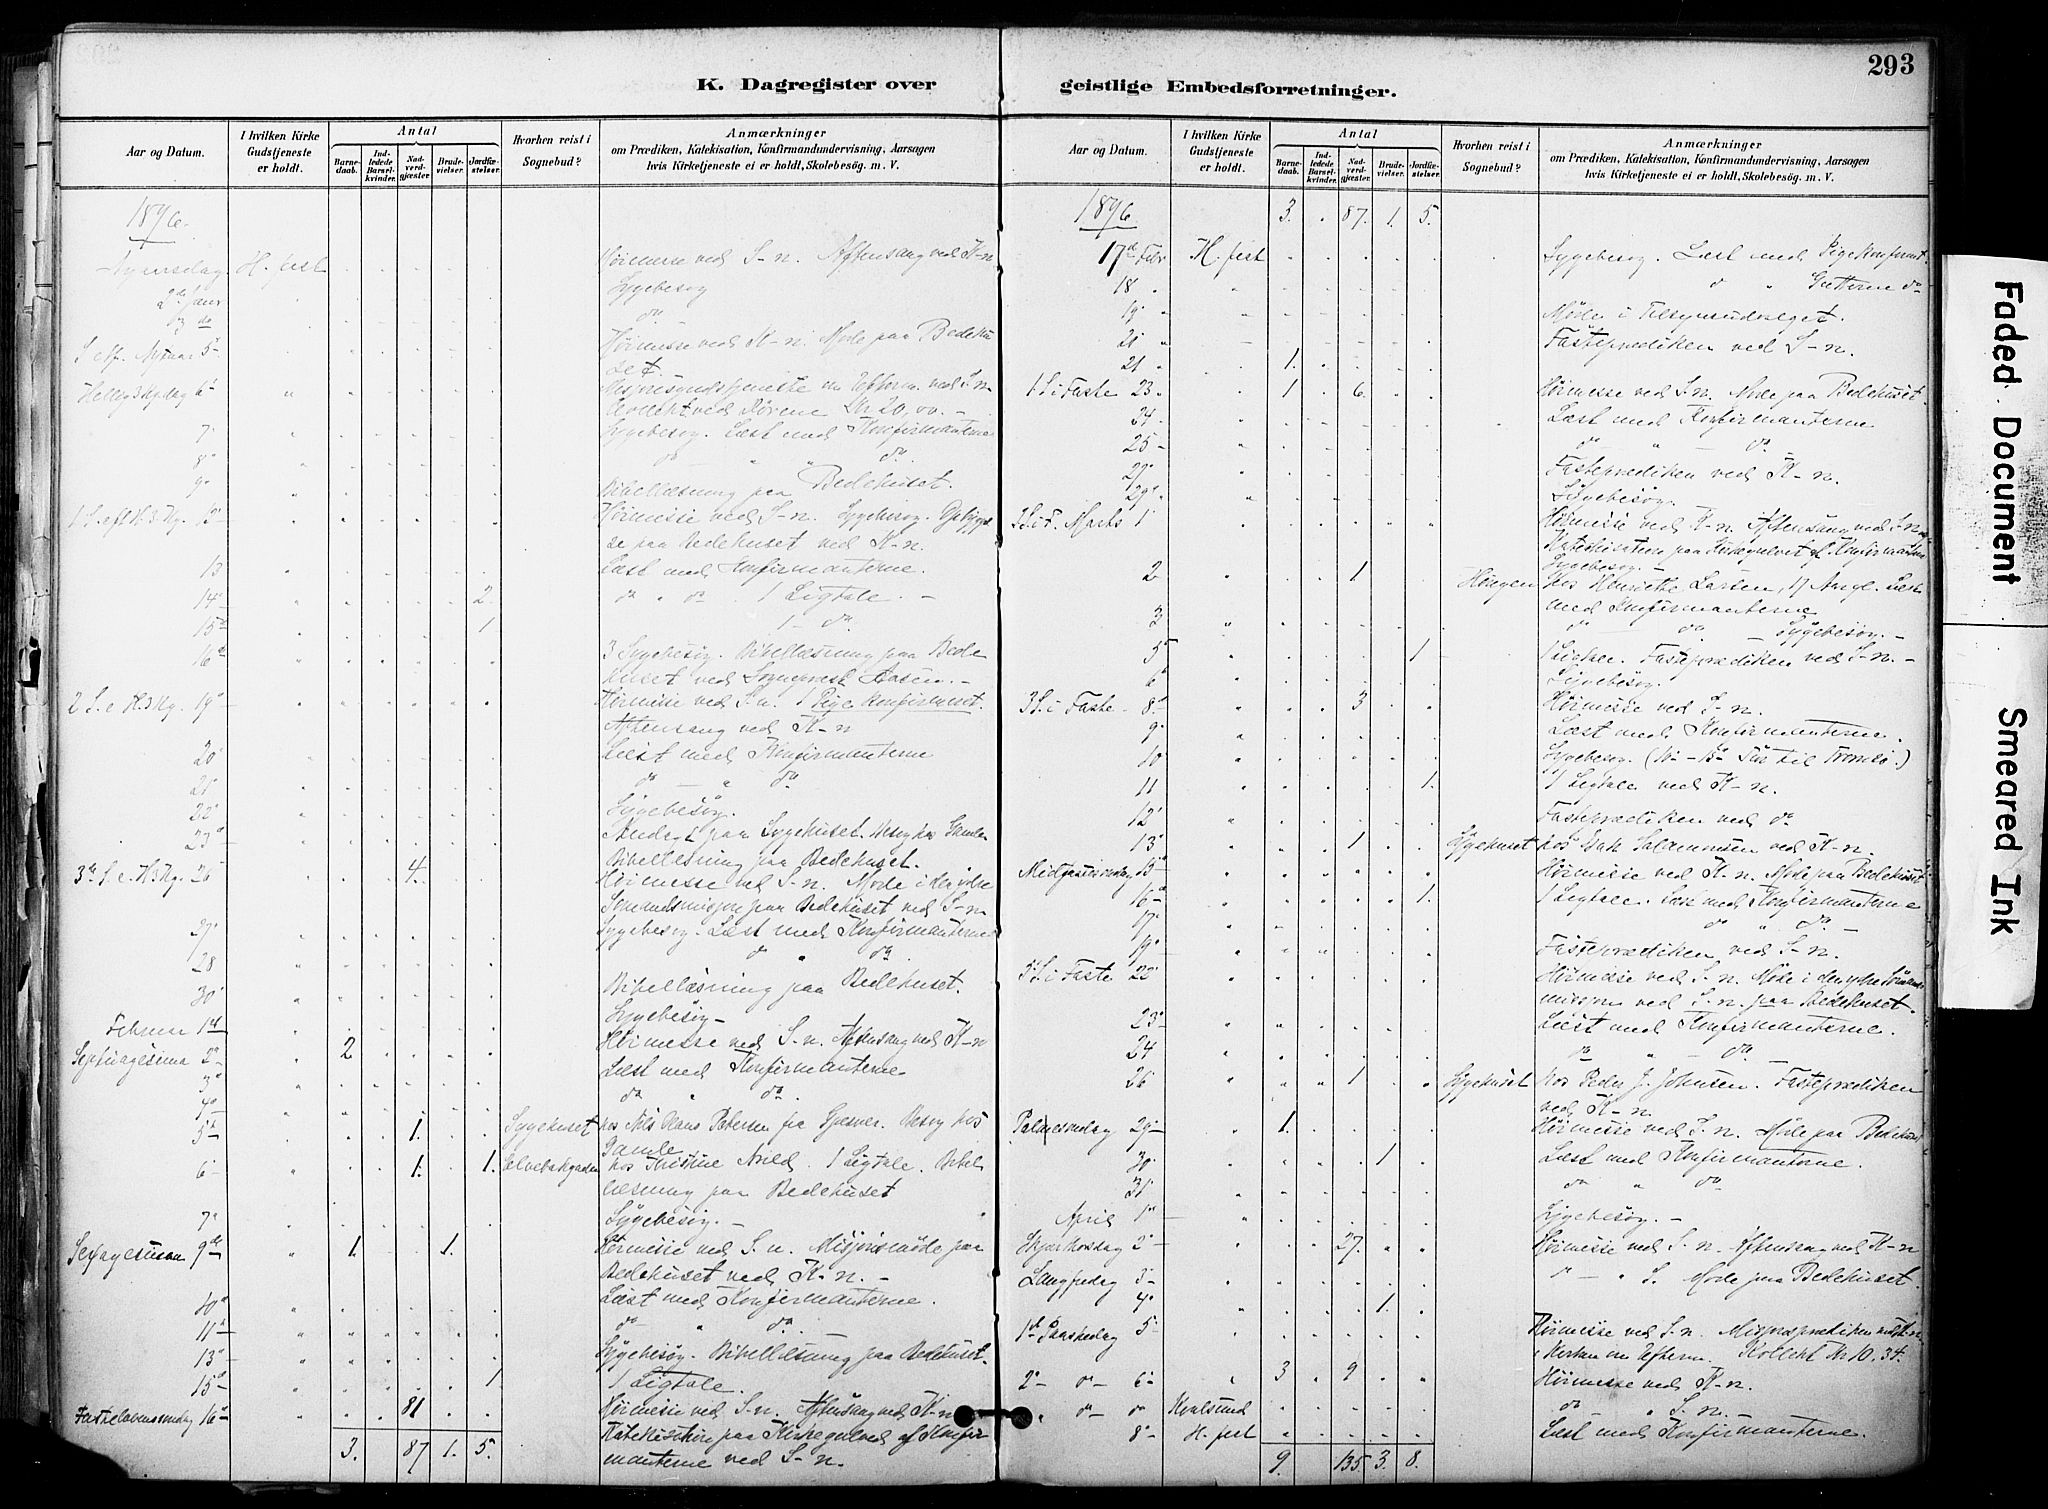 293
K. Dagregister over geistlige Embedsforretninger.
Aar og Datum.
I hvilken Kirke Gudstjeneste er holdt.
Antal
Barnedaab.
Indledede Barselkvinder.
Nadverdgjæster.
Brudevielser.
Jordfæstelser.
Hvorhen reist i Sognebud?
Anmærkninger
om Prædiken, Katekisation, Konfirmandundervisning, Aarsagen
hvis Kirketjeneste ei er holdt, Skolebesög. m. V.
1896.
Nyaarsdag H. fest Høimesse ved S-n. Aftensang ved K-n.
2den Janr Sygebesøg
3 do do
S. eft. Nyaar 5 Høimesse ved K-n. Møde paa Bedehu
set.
Hellig 3 Kgdag 6 ved S-n.
Kr 20,00.-
7 Sygebesøg. Læst med Konfirmanterne
8 do " do
9 Bibellæsning paa Bedehuset.
1 S. eft H. 3 Kg. 12 Høimesse ved S-n. Sygebesøg.
se paa Bedehuset ved K-n.
13 Læst med Konfirmanterne.
14 2. do " do 1 Ligtale. -
15 1 1 - do.
16 3 Sygebesøg. Bibellæsning paa Bede
huset ved Sogneprest Aasen.-
2 S. e H. 3 Kg. 19 Høimesse ved S-n. 1 Pige konfirmeret.
Aftensang ved K-n
20 Læst med Konfirmanterne
21 do - " do
22 Sygebesøg.
23 Andagt paa Sygehuset.
Bibellæsning paa Bedehuset.
3die S. e. H. 3 Kg. 26 4. Høimesse ved S-n. Møde i den indre
Sømandsmisjon paa Bedehuset ved S-n
27 Sygebesøg. Læst med Konfirmanterne
28 do " do
30 Bibellæsning paa Bedehuset.
Februar 1st Sygebesøg -
Septuagesima 2 2 Høimesse ved S-n. Aftensang ved K-n
3 Læst med Konfirmanterne
4 do " do.
5 1. Sygehuset hos Nils Claus Petersen fra Gjesvær. Besøg hos
Gamle
6 1. 1. hos Kristine Arild. 1 Ligtale. Bibel
læsning paa Bedehuset
7 Sygebesøg. -
Sexagesima 9de 1. 1. Høimesse ved S-n. Misjonsmøde paa
Bedehuset ved K-n. -
10 Læst med Konfirmanterne.
11 do " do.
13 Sygebesøg. Bibellæsning paa Bedehuset.
15 1 1 Ligtale.
Fastelavnssøndag 16 81 Høimesse ved S-n. Aftensang ved K-n
3. 87 1. 5. Katekisation paa Kirkegulvet af Konfir
manterne ved S-n.
Aar og Datum.
I hvilken Kirke Gudstjeneste er holdt.
Antal
Barnedaab.
Indledede Barselkvinder.
Nadverdgjæster.
Brudevielser.
Jordfæstelser.
Hvorhen reist i Sognebud?
Anmærkninger
om Prædiken, Katekisation, Konfirmandundervisning, Aarsagen
hvis Kirketjeneste ei er holdt, Skolebesög. m. V.
1896 3. " 87. 1. 5.
17de Febr H. fest Sygebesøg. Læst med Pigekonfirmt.
18 do " Gutterne do
19 Møde i Tilsynsudvalget.
21 Fasteprædiken ved S-n.
21 1.
1 S. i Faste 23 1 6. Høimesse ved S-n. Møde paa Bedehuset.
24 Læst med Konfirmanterne
25 do " do
27 Fasteprædiken ved K-n.
29 Sygebesøg.
2 S. i F. Marts 1 Høimesse ved K-n. Aftensang ved S-n
Katekisation paa Kirkegulvet af Konfirmanterne
Sygebesøg. -
2 1 hos Henriette Larsen, 17 Aar gl. Læst
med Konfirmanterne
3 do do - Sygebesøg. -
5 1 1 Ligtale. Fasteprædiken ved S-n. -
6 Sygebesøg.
3 S. i Faste 8 3 Høimesse ved S-n.
9 Læst med Konfirmanterne.
10 Sygebesøg. til Tromsø.)
11 1. 1 Ligtale ved K-n.
12 Fasteprædiken ved do
13 1 Sygehuset hos Isak Salamonsen ved K-n.
Midfastesøndag 15 Høimesse ved K-n. Møde paa Bedehuset
16 1. 1 Ligtale. Læst med Konfirmanterne
17 do " do.
19 Fasteprædiken ved S-n.
5 S. i Faste 22 Høimesse ved S-n. Møde i den indre Sømands
misjon ved S-n. paa Bedehuset.
23 Læst med Konfirmanterne.
24 do " - do
26 1 Sygehuset hos Peder J. Johnsen. Fasteprædiken
ved K-n.
Palmesøndag 29 1. Høimesse ved S-n. Møde paa Bedehuset
30 1 Læst med Konfirmanterne.
31 do " do
April 1 Sygebesøg. -
Skjærtorsdag 2 27. Høimesse ved S-n. Aftensang ved K-n
Langfredag 3 " - " S. Møde paa Bedehuset.
4 1.
1ste Paaskedag 5 Høimesse ved S-n. Misjonsprædiken ved K-n
i Kirken om Efterm. Kollekt Kr 10.34.
2 - do - 6 3 9 Høimesse ved K-n.
" do - do Kvalsund do - " S-n. -
8 H. fest Læst med Konfirmanterne.
9. 135. 3. 8.
Faded Document Smeared Ink